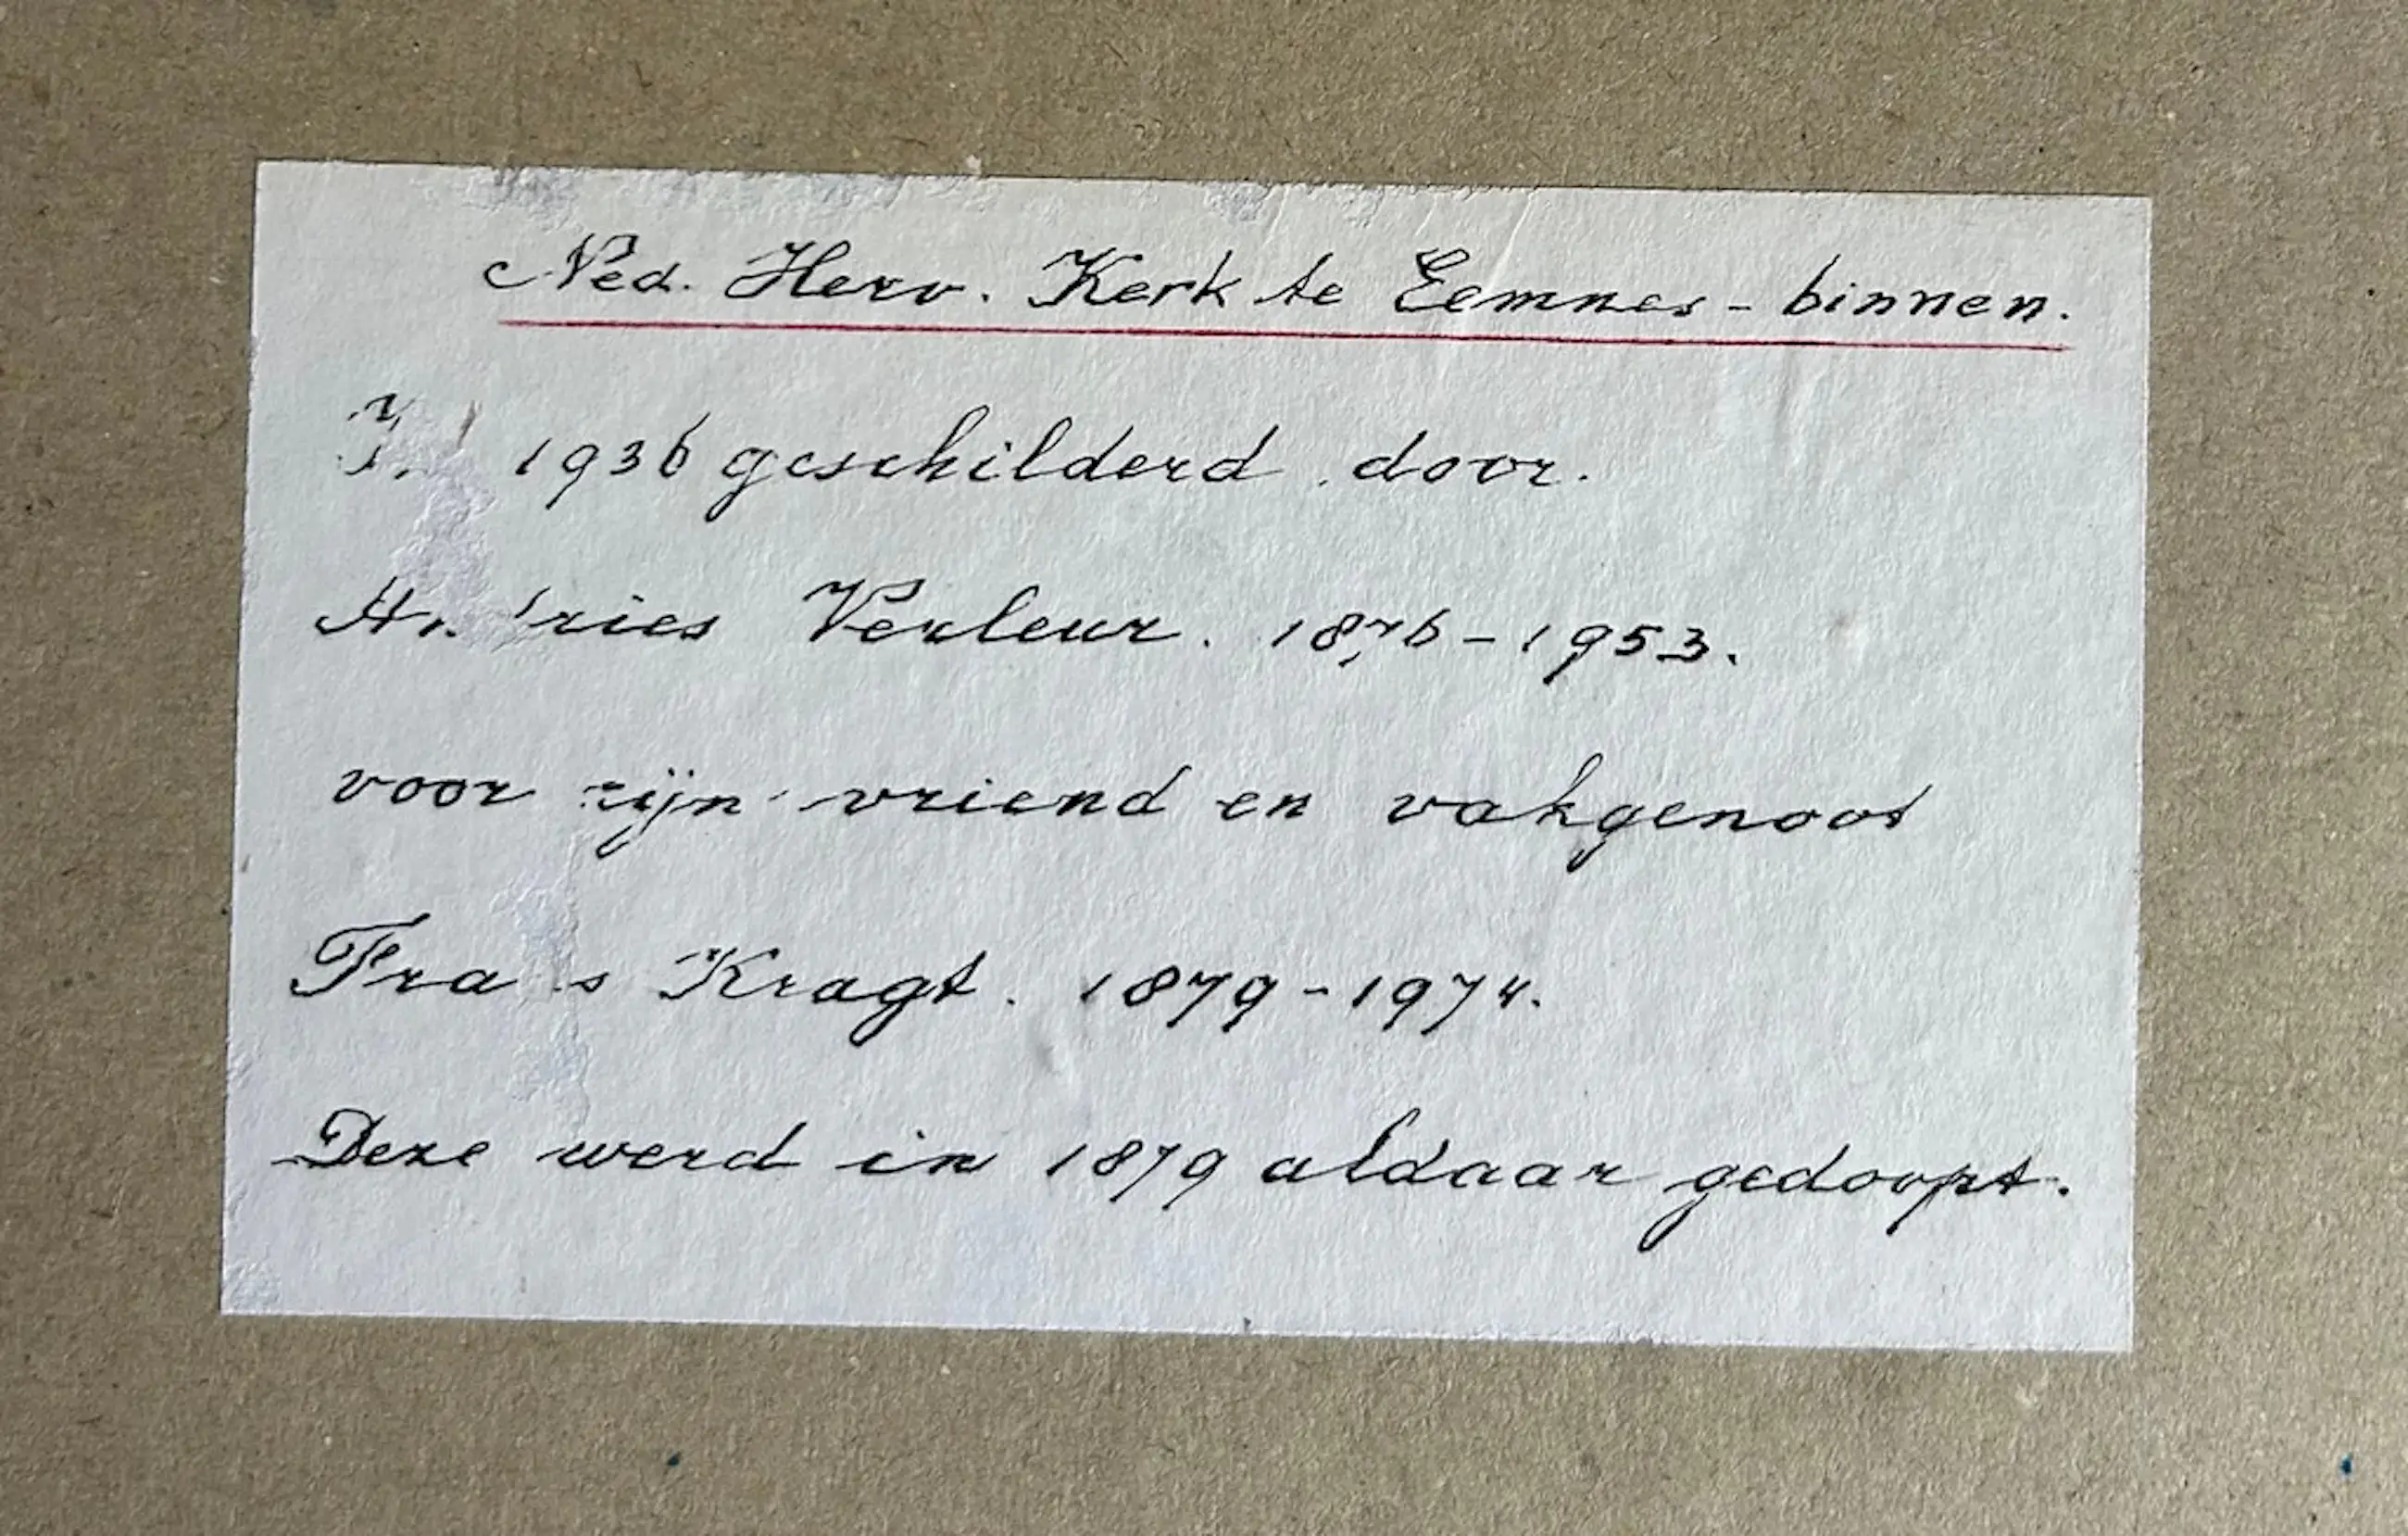 Ned. Herv. Kerk te Eemnes - binnen.
In 1936 geschilderd door.
Andries Verleur. 1876 - 1953.
voor zijn vriend en vakgenoot
Frans Kragt. 1879 - 1974.
Deze werd in 1879 aldaar gedoopt.